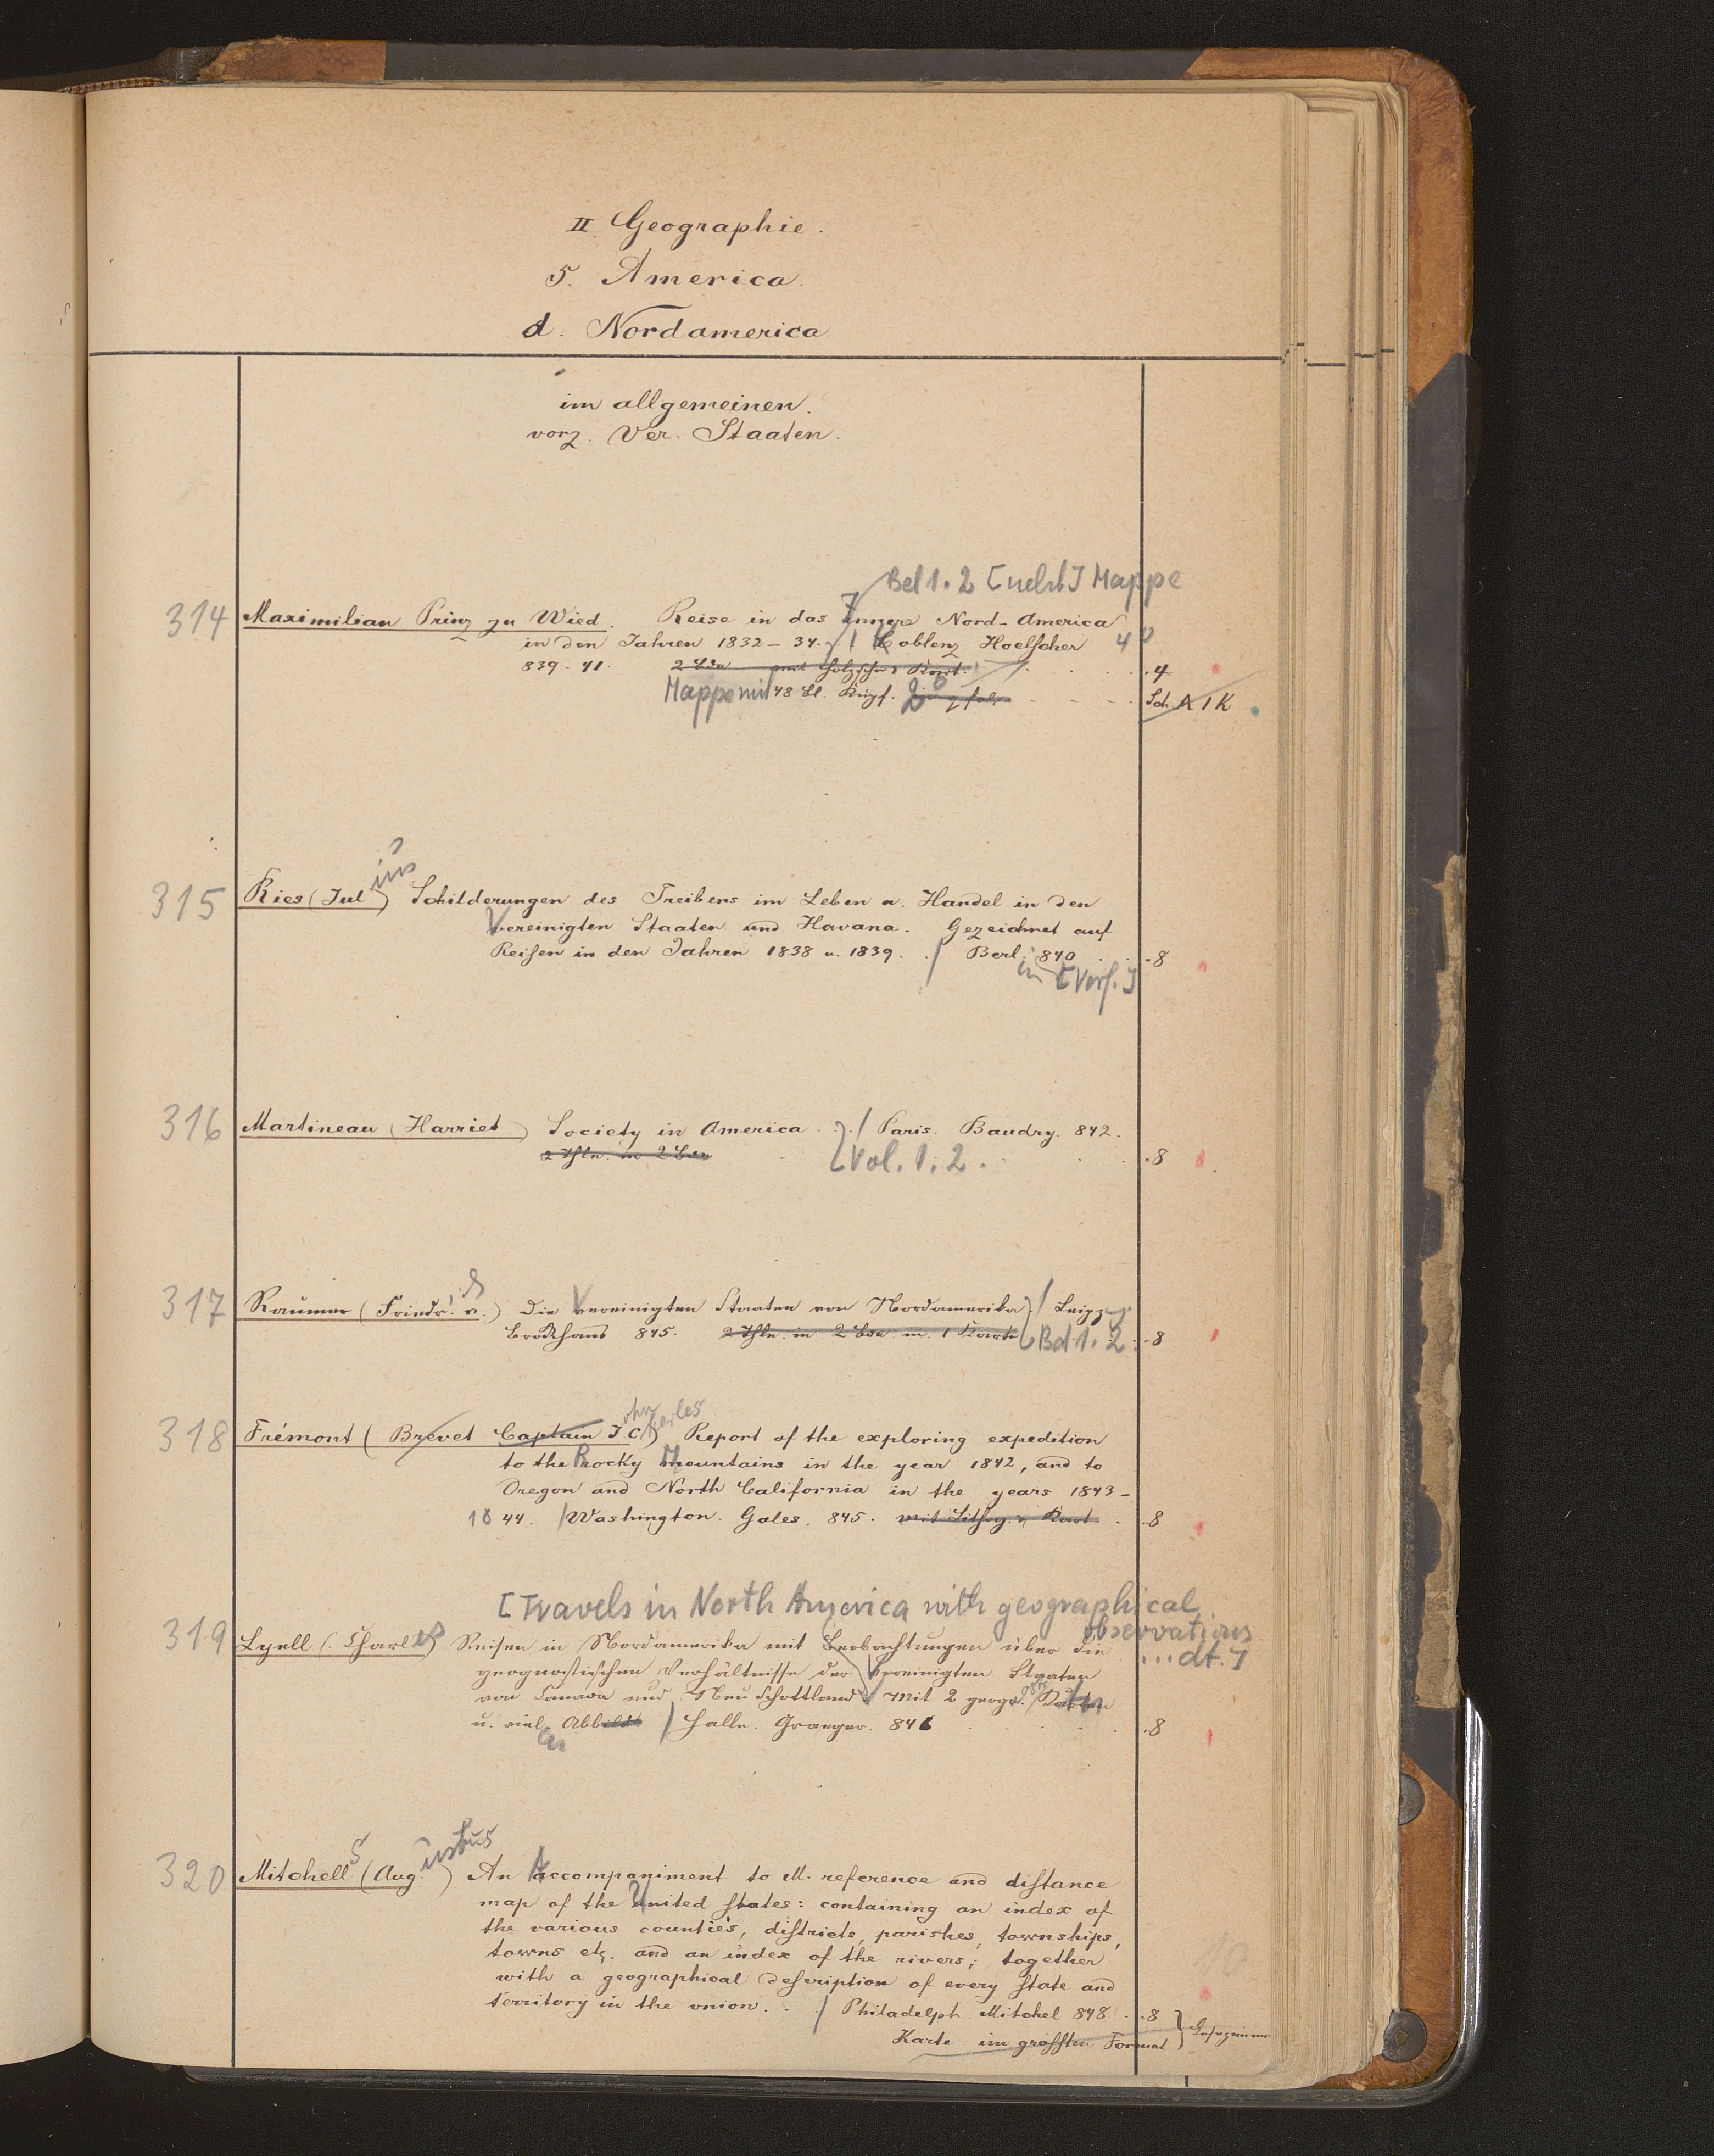 II. Geographie.
5. America.
d. Nordamerica
im allgemeinen.
vorz. Ver. Staaten.
Bd 1. 2 [nebst] Mappe
314 Maximilian Prinz zu Wied. Reise in das Innere Nord-America
in den Jahren 1832-34. / Coblenz Hoelscher 4°
839-41. 2 Bde mit Holzschn. Kart. 4
Mappe mit 48 Bl. Kupf. 2° Sch. A 1 K
ius
315 Ries (Jul) Schilderungen des Treibens im Leben u. Handel in den
Vereinigten Staaten und Havana. Gezeichnet auf
Reisen in den Jahren 1838 u. 1839. / Berl. 840 8
in [Verf.]
316 Martineau (Harriet) Society in America. / Paris. Baudry. 842.
2 Thle. in 2 Bde Vol. 1. 2. 8
317 Raumer (Friedr. v.) Die Vereinigten Staaten von Nordamerika / Leipz.
Brockhaus 845. 2 Thle. in 2 Bde m. 1 Karte Bd 1. 2. 8
ohn arles
318 Frémont (Brevet Captain J. C.) Report of the exploring expedition
to the Rocky Mountains in the year 1842, and to
Oregon and North California in the years 1843-
1844. / Washington. Gales. 845. mit Lithog. u. Kart. 8
[Travels in North America with geographical
observations
319 Lyell (Charles) Reisen in Nordamerika mit Beobachtungen über die ...dt.]
geognostischen Verhältnisse der Vereinigten Staaten
von Canada und Neu Schottland. Mit 2 geogr. Karten
u. vielen Abbild. / Halle. Graeger. 846 8
S ustus
320 Mitchell (Aug.) An Accompaniment to M. reference and distance
map of the United states: containing an index of
the various counties, districts, parishes, townships,
towns etc. and an index of the rivers; together
with a geographical description of every state and
territory in the union. / Philadelph. Mitchel 848. 8
Karte im grossten Format